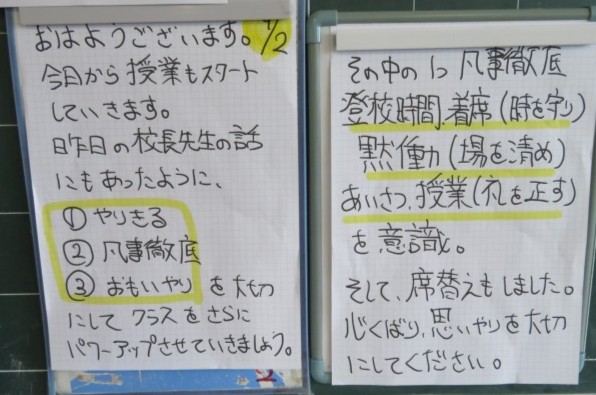 おはようございます。9/2
今日から授業もスタート
していきます。
昨日の校長先生の話
にもあったように、
① やりきる
② 凡事徹底
③ おもいやり を大切
にして クラスをさらに
パワーアップさせていきましょう。
その中の1つ 凡事徹底
登校時間、着席（時を守り）
黙働（場を清め）
あいさつ、授業（礼を正す）
を意識。
そして、席替えもしました。
心くばり、思いやりを大切
にしてください。